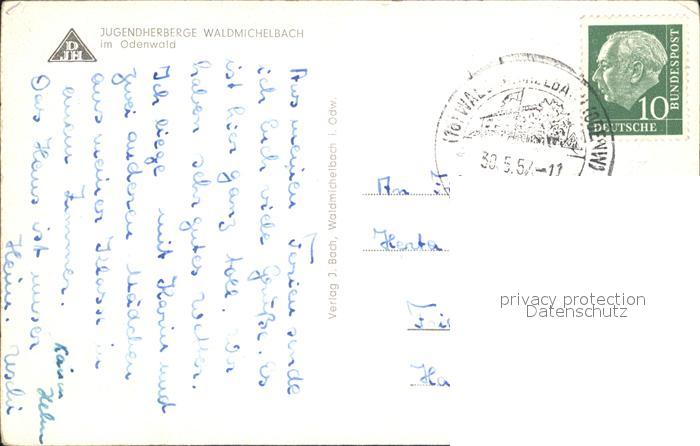 JUGENDHERBERGE WALDMICHELBACH
im Odenwald
DJH
Aus meinen Ferien sende
ich Euch viele Grüße. Es
ist hier ganz toll. Wir
haben sehr gutes Wetter.
Ich liege mit Karin und
zwei anderen Mädchen
aus meiner Klasse in
einem Zimmer.
Das Haus ist unser
Heim. Uschi
Karin
Verlag J. Bach, Waldmichelbach i. Odw.
10
DEUTSCHE
BUNDESPOST
30.5.57.-11
An
Herta
privacy protection
Datenschutz